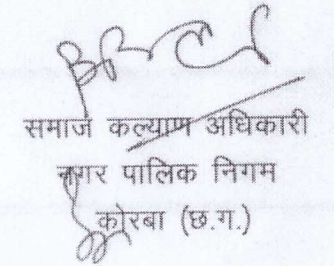 समाज कल्याण अधिकारी
नगर पालिक निगम
कोरबा (छ.ग.)